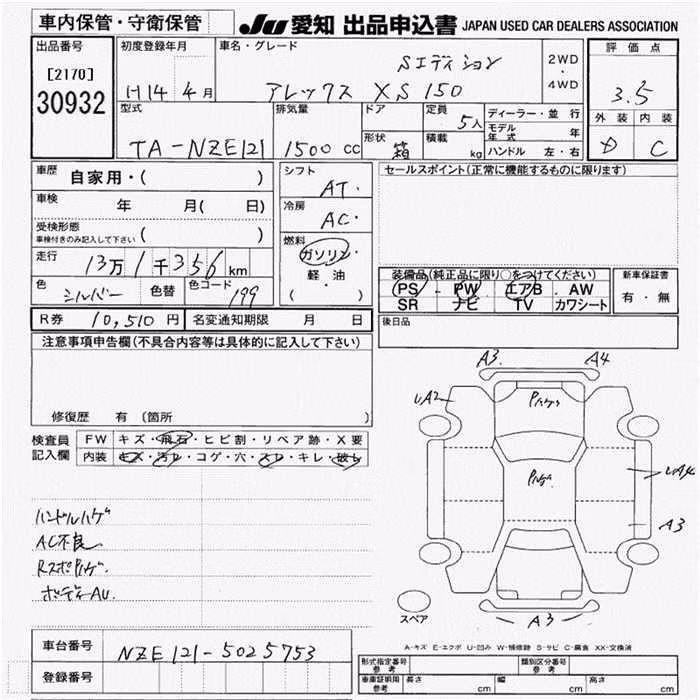 車内保管・守衛保管 JU 愛知 出品申込書 JAPAN USED CAR DEALERS ASSOCIATION
出品番号 初度登録年月 車名・グレード 評価点
[2170] Sエディション 2WD・4WD
30932 H14年4月 アレックス XS150 3.5
型式 排気量 ドア 定員 ディーラー・並行 外装 内装
TA-NZE121 1500cc 5人 モデル年式 年 D C
形状 箱 積載 kg ハンドル 左・右
車歴 自家用・( ) シフト AT. セールスポイント(正常に機能するものに限ります)
車検 年 月( 日) 冷房 AC.
受検形態 ( )
車検付きのみ記入して下さい
燃料 ガソリン・軽油 ( )
走行 13万1千356km
装備品(純正品に限り○をつけてください) 新車保証書
色 シルバー 色替 色コード 199
PS・PW・エアB・AW 有・無
SR ナビ TV カワシート
R券 10,510円 名変通知期限 月 日 後日品
注意事項申告欄(不具合内容等は具体的に記入して下さい)
A3. A4
UA2
修復歴 有(箇所
検査員記入欄 FW キズ・飛石・ヒビ割・リペア跡・X要
内装 キズ・汚レ・コゲ・穴・スレ・キレ・破レ
UA4
ハンドルハゲ A3
AC不良
ボディAU.
スペア A3
A-キズ E-エクボ U-凹み W-補修跡 S-サビ C-腐食 XX-交換済
車台番号 NZE121-5025753
形式指定番号 参考 類別区分番号 参考
登録番号 車庫証明用 参考 長さ cm 幅 cm 高さ cm